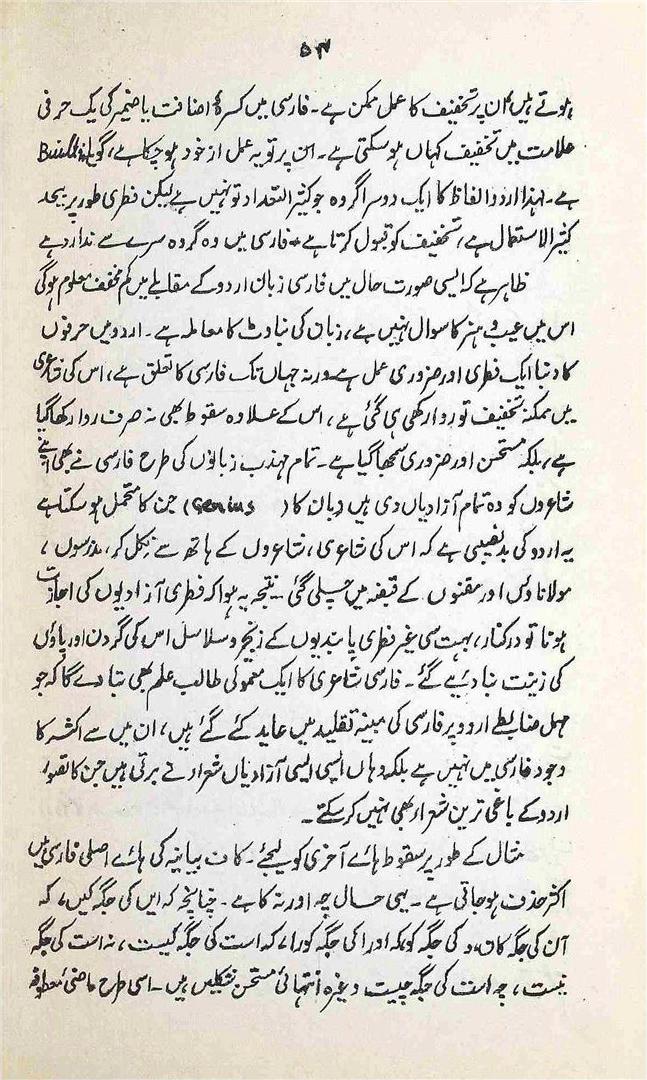 ۵۴
ہوتے ہیں، ان پر تخفیف کا عمل ممکن ہے۔ فارسی میں کسرۂ اضافت یا ضمیر کی یک حرفی
علامت میں تخفیف کہاں ہو سکتی ہے۔ ان پر تو یہ عمل از خود ہو چکا ہے، گویا Builtin
ہے۔ لہذا اردو الفاظ کا ایک دوسرا گروہ جو کثیر التعداد تو نہیں ہے لیکن فطری طور پر بیحد
کثیر الاستعمال ہے، تخفیف کو قبول کرتا ہے، فارسی میں وہ گروہ سرے سے ندارد ہے
ظاہر ہے کہ ایسی صورت حال میں فارسی زبان اردو کے مقابلے میں کم مخفف معلوم ہوگی
اس میں عیب و ہنر کا سوال نہیں ہے، زبان کی بناوٹ کا معاملہ ہے۔ اردو میں حرفوں
کا دبنا ایک فطری اور ضروری عمل ہے ورنہ جہاں تک فارسی کا تعلق ہے، اس کی شاعری
میں ممکنہ تخفیف تو روا رکھی ہی گئی ہے، اس کے علاوہ سقوط بھی نہ صرف روا رکھا گیا
ہے، بلکہ مستحسن اور ضروری سمجھا گیا ہے۔ تمام مہذب زبانوں کی طرح فارسی نے بھی اپنے
شاعروں کو وہ تمام آزادیاں دی ہیں زبان کا (Genius) جن کا متحمل ہو سکتا ہے
یہ اردو کی بدنصیبی ہے کہ اس کی شاعری، شاعروں کے ہاتھ سے نکل کر، مدرسوں،
مولاناؤں اور مقننوں کے قبضہ میں چلی گئی۔ نتیجہ یہ ہوا کہ فطری آزادیوں کی اجازت
ہونا تو درکنار، بہت سی غیر فطری پابندیوں کے زنجیر و سلاسل اس کی گردن اور پاؤں
کی زینت بنا دیئے گئے۔ فارسی شاعری کا ایک معمولی طالب علم بھی بتا دے گا کہ جو
مہمل ضابطے اردو پر فارسی کی مبینہ تقلید میں عاید کئے گئے ہیں، ان میں سے اکثر کا
وجود فارسی میں نہیں ہے بلکہ وہاں ایسی ایسی آزادیاں شعراء نے برتی ہیں جن کا تصور
اردو کے باغی ترین شعراء بھی نہیں کر سکتے۔
مثال کے طور پر سقوط ہائے آخری کو لیجئے۔ کاف بیانیہ کی ہائے اصلی فارسی میں
اکثر حذف ہو جاتی ہے۔ یہی حال چہ اور نہ کا ہے۔ چنانچہ کہ ایں کی جگہ کیں، کہ
آن کی جگہ کاں، کہ او را کی جگہ کورا، کہ است کی جگہ کیست، نہ است کی جگہ
نیست، چہ است کی جگہ چیست وغیرہ انتہائی مستحسن شکلیں ہیں۔ اسی طرح ماضی معطوفہ